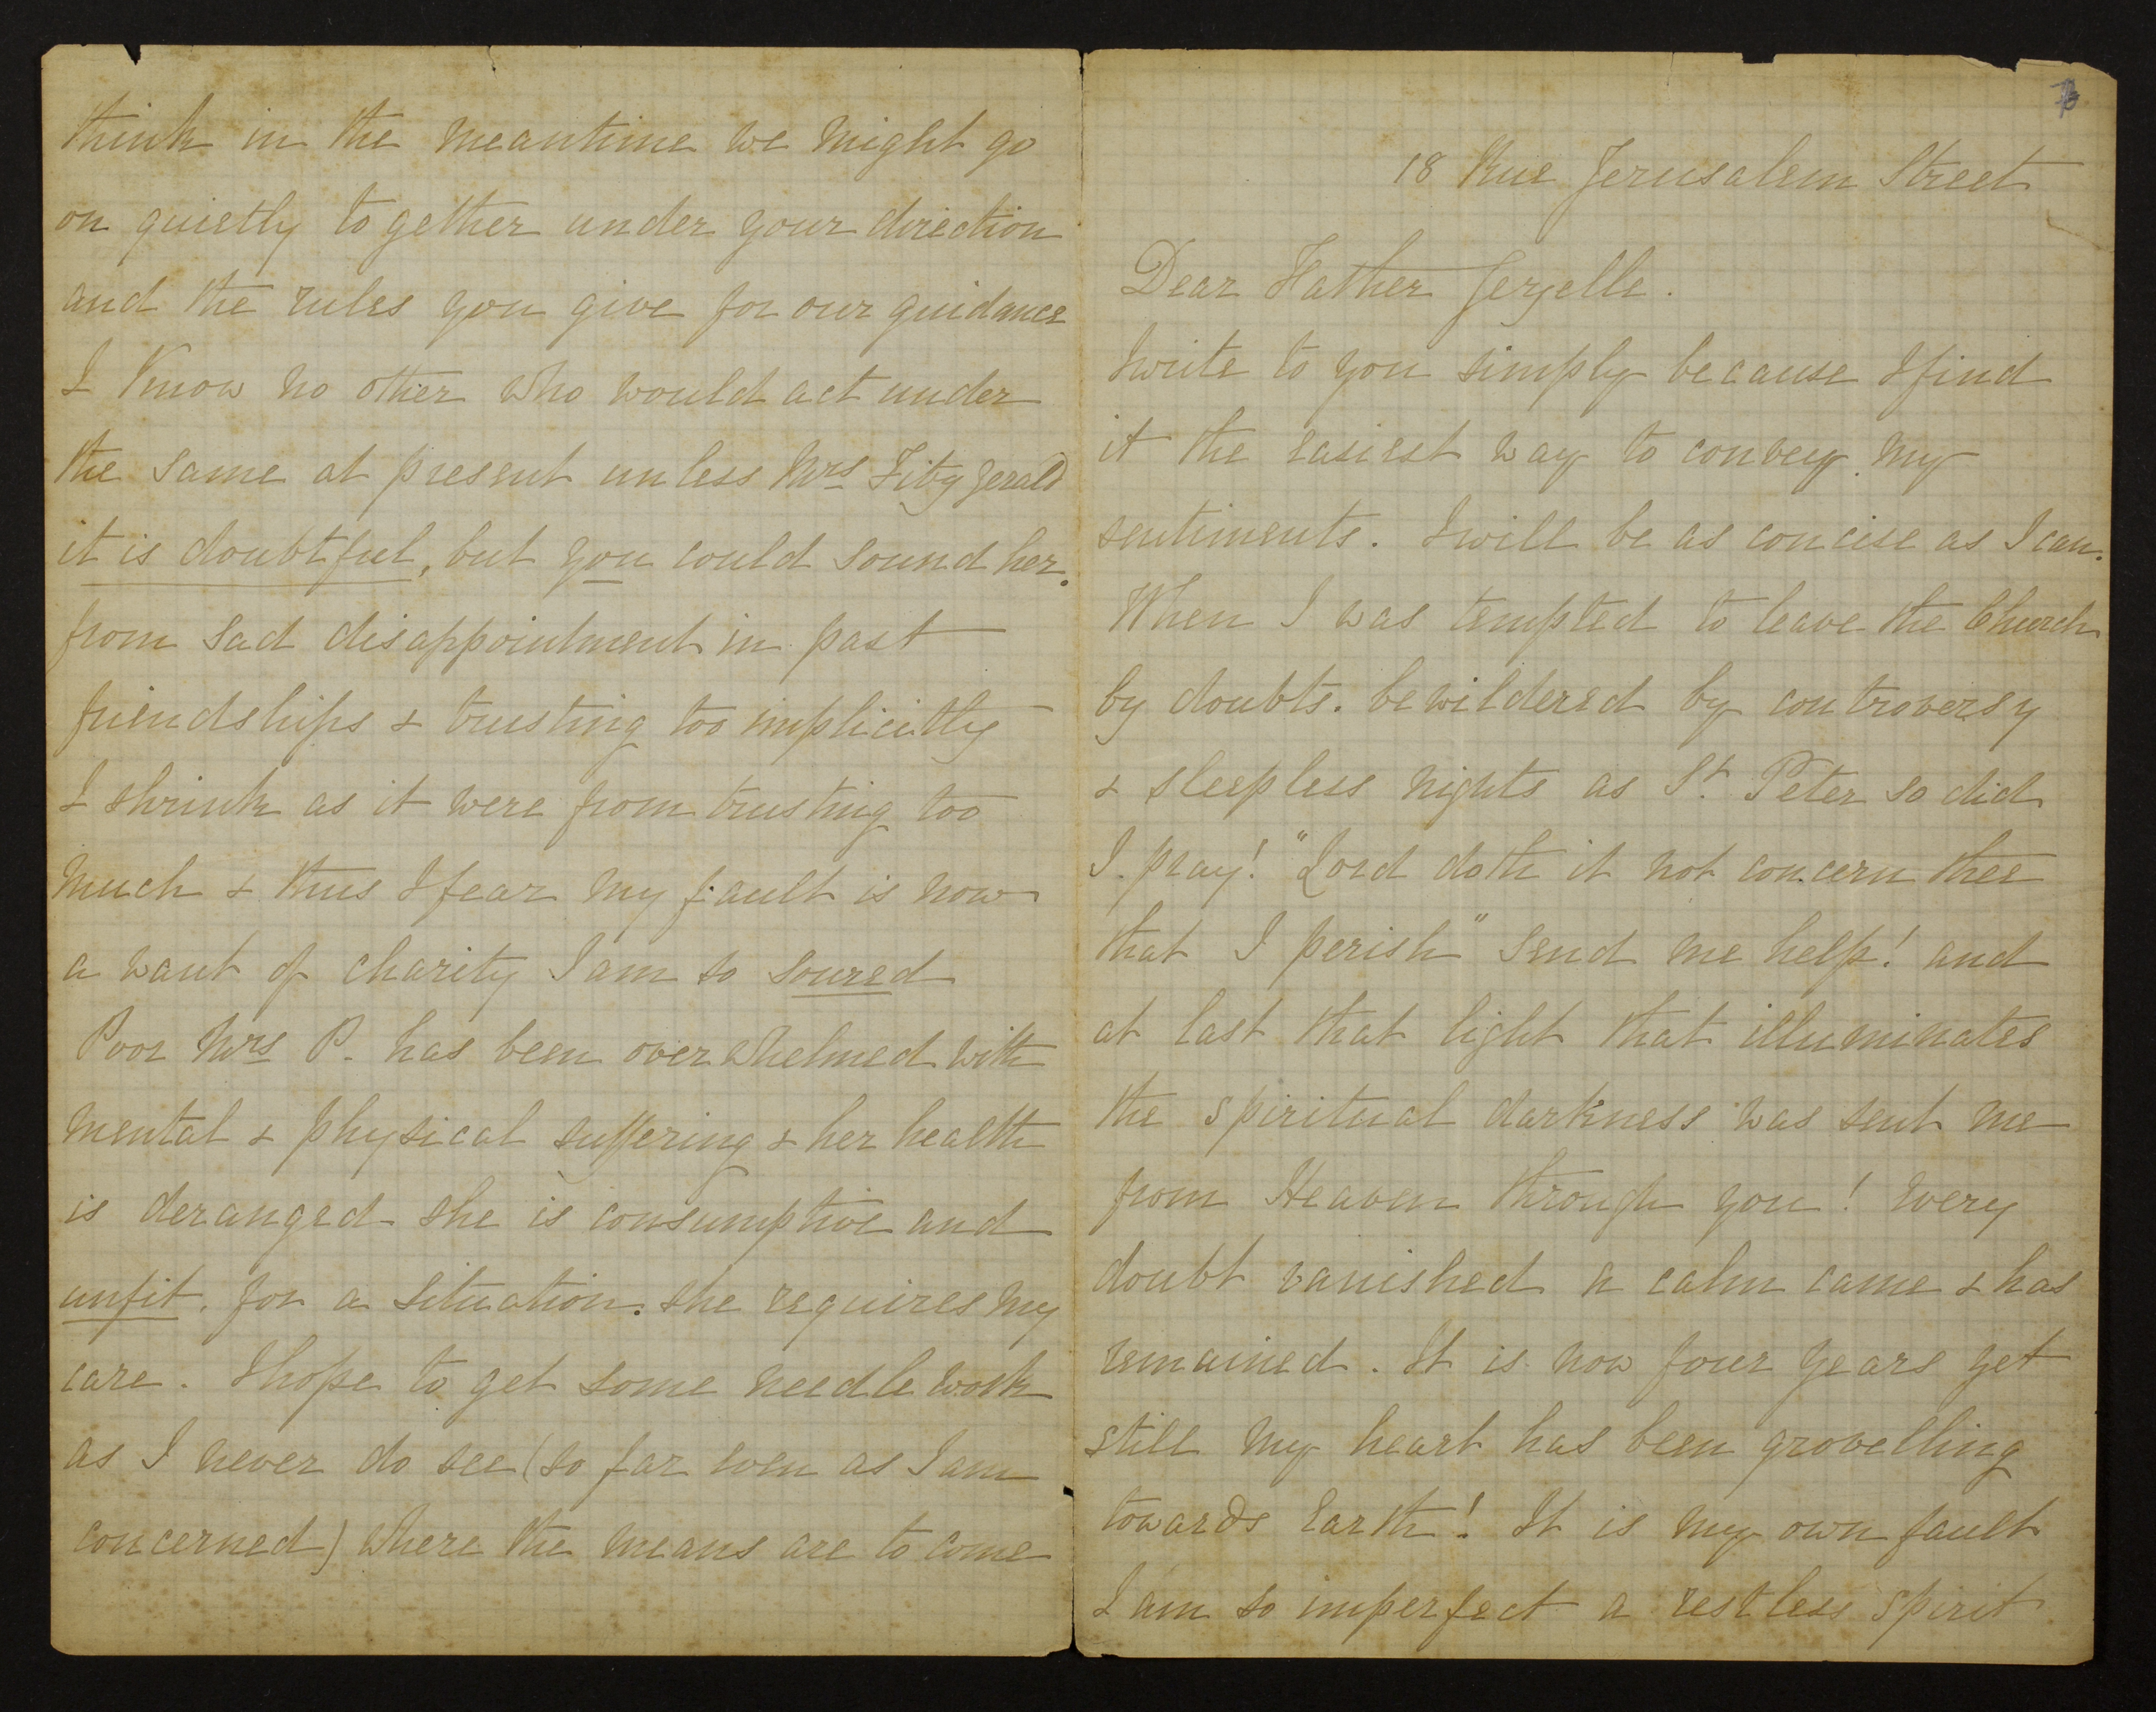 think in the meantime we might go
on quietly together under your direction
and the rules you give for our guidance
I know no other who would act under
the same at present unless Mrs Fitzgerald
it is doubtful, but you could sound her.
from sad disappointment in past
friendships & trusting too implicitly
I shrink as it were from trusting too
much & thus I fear my fault is now
a want of charity I am so soured
Poor Mrs P. has been overwhelmed with
mental & physical suffering & her health
is deranged she is consumptive and
unfit. for a situation. she requires my
care. I hope to get some needle work
as I never do see (so far even as I am
concerned) where the means are to come
18 Rue Jerusalem Street
Dear Father
I write to you simply because I find
it the easiest way to convey my
sentiments. I will be as concise as I can.
When I was tempted to leave the Church
by doubts. bewildered by controversy
& sleepless nights as St. Peter so did
I. pray! "Lord doth it not concern thee
that I perish" send me help! and
at last that light that illuminates
the spiritual darkness was sent me
from Heaven through you! Every
doubt vanished a calm came & has
remained. It is now four years yet
still my heart has been grovelling
towards Earth! It is my own fault
I am so imperfect a restless spirit